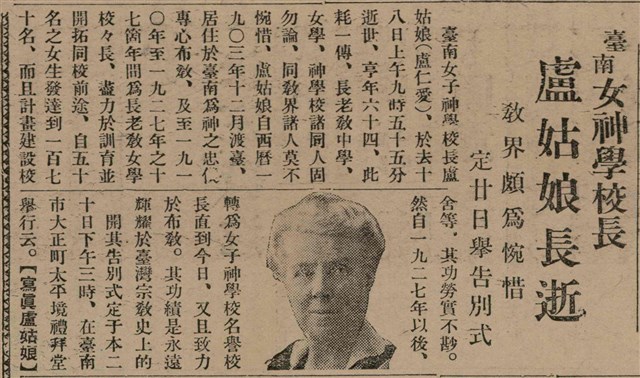 臺南女神學校長
盧姑娘長逝
敎界頗爲惋惜
定廿日舉告別式
臺南女子神學校長盧
姑娘(盧仁愛)、於去十
八日上午九時五十五分
逝世、享年六十四、此
耗一傳、長老敎中學、
女學、神學校諸同人固
勿論、同敎界諸人莫不
惋惜、盧姑娘自西曆一
九〇三年十二月渡臺、
居住於臺南爲神之忠仆
專心布敎、及至一九一
〇年至一九二七年之十
七箇年間爲長老敎女學
校々長、盡力於訓育並
開拓同校前途、自五十
名之女生發達到一百七
十名、而且計畫建設校
舍等、其功勞實不尠。
然自一九二七年以後、
轉爲女子神學校名譽校
長直到今日、又且致力
於布敎。其功績是永遠
輝耀於臺灣宗敎史上的
開其告別式定于本二
十日下午三時、在臺南
市大正町太平境禮拜堂
舉行云。【寫眞盧姑娘】